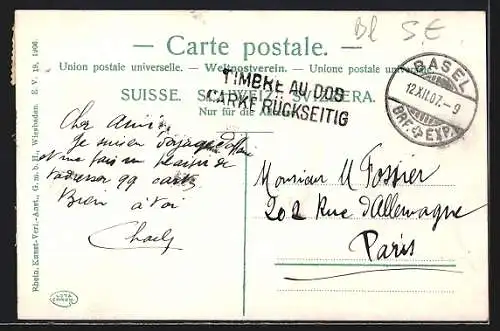 Bl S.E
— Carte postale. —
Union postale universelle. — Weltpostverein. — Unione postale universale.
SUISSE. SCHWEIZ. SVIZZERA.
Nur für die Adresse
TIMBRE AU DOS
MARKE RÜCKSEITIG
BASEL
12.XII.07.-9
BRF. EXP.
Cher Ami,
Je suis en voyage
et me fais un plaisir de
t'adresser qq cartes
Bien à toi
Charly
Monsieur M Fossier
202 Rue d'Allemagne
Paris
Rhein. Kunst-Verl.-Anst., G. m. b. H., Wiesbaden. E. V. 19. 1906.